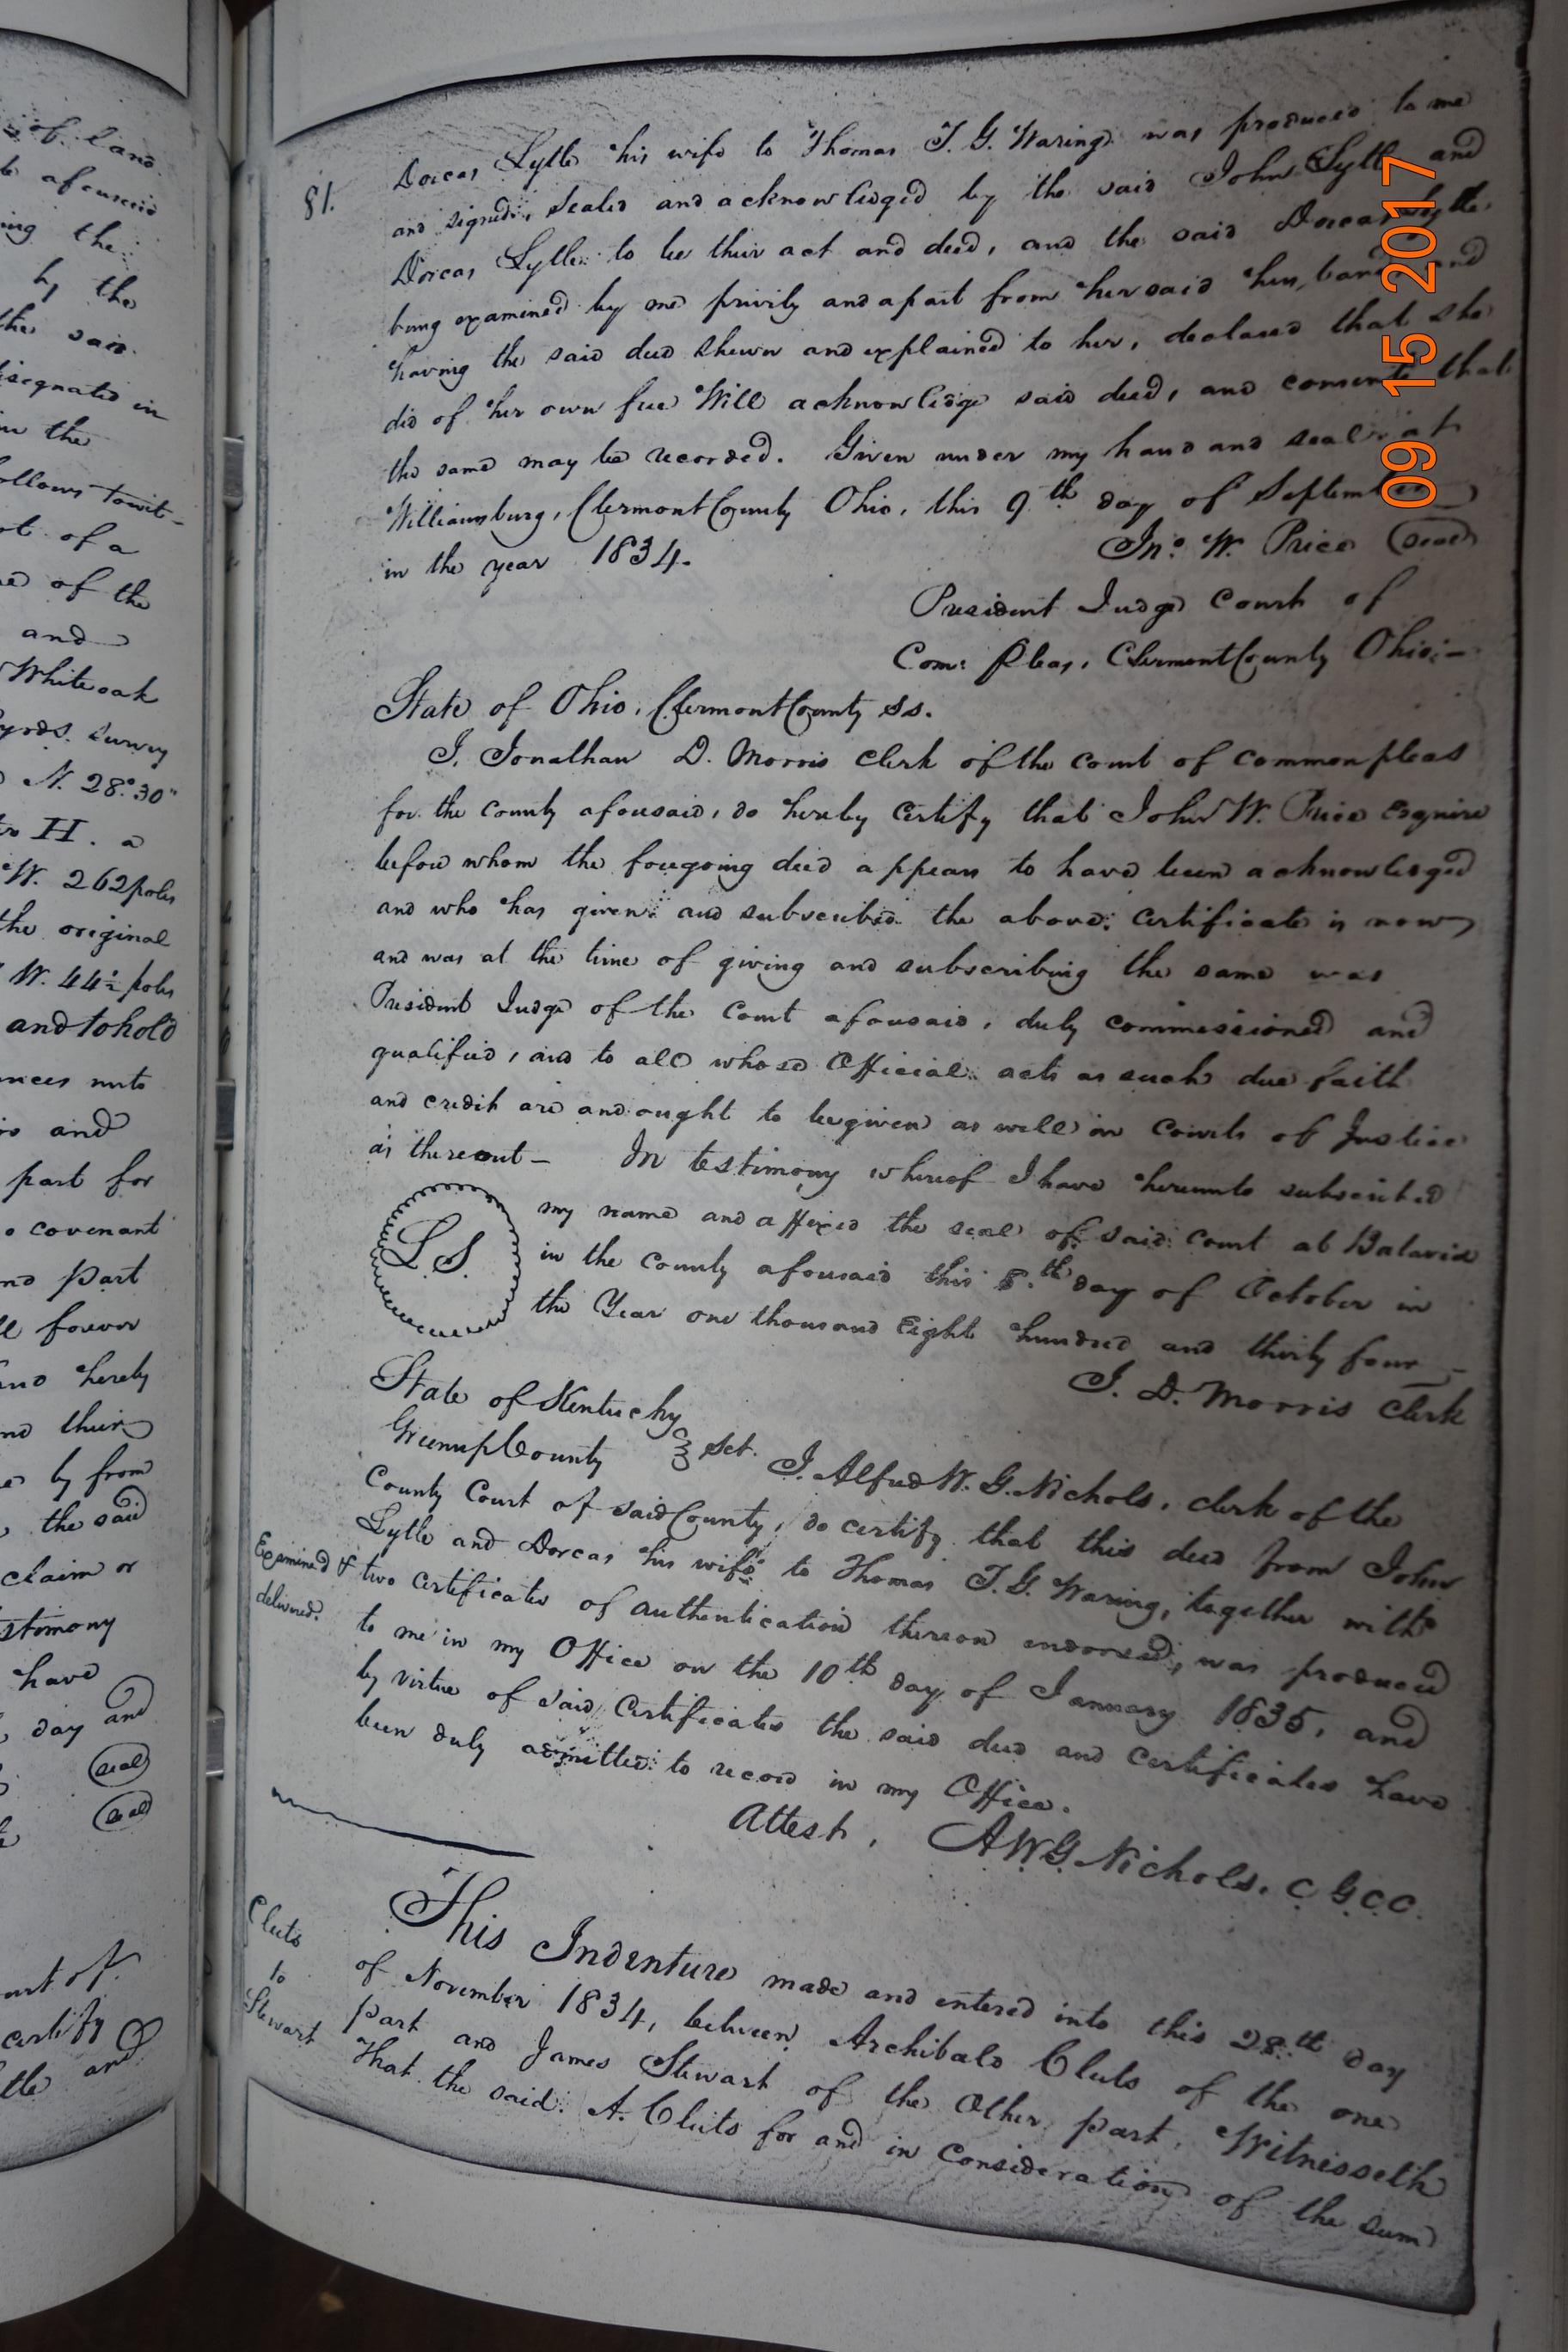 of land
aforesaid
ing the
by the
the said
designated in
in the
follows towit-
ot of a
ed of the
and
Whiteoak
Byrds survey
N. 28° 30"
to H. a
W. 262 poles
the original
W. 44½ poles
and to hold
nces unto
and
part for
o covenant
nd part
ll forever
and hereby
nd their
by from
, the said
claim or
stimony
have
day and
seal
seal
certify
and
81.
Dorcas Lytle his wife to Thomas T. G. Waring was produced to me
and signed, sealed and acknowledged by the said John Lytle and
Dorcas Lytle to be their act and deed, and the said Dorcas Lytle
being examined by me privily and apart from her said husband and
having the said deed shewn and explained to her, declared that she
did of her own free Will acknowledge said deed, and consents that
the same may be recorded. Given under my hand and seal at
Williamsburg, Clermont County Ohio, this 9th day of September
in the year 1834.
Jno. W. Price Seal
President Judge Court of
Com: Pleas, Clermont County Ohio:-
State of Ohio, Clermont County ss.
I, Jonathan D. Morris Clerk of the Court of Common pleas
for the County aforesaid, do hereby Certify that John W. Price Esquire
before whom the foregoing deed appears to have been acknowledged
and who has given and subscribed the above Certificate is now
and was at the time of giving and subscribing the same was
President Judge of the Court aforesaid, duly commissioned and
qualified, and to all whose Official acts as such due faith
and credit are and ought to be given as well in Courts of Justice
as thereout - In testimony whereof I have hereunto subscribed
L.S.
my name and affixed the seal of said Court at Batavia
in the County aforesaid this 8th day of October in
the Year one thousand Eight hundred and thirty four -
J. D. Morris Clerk
State of Kentucky
Greenup County Sct. I, Alfred W. G. Nichols, clerk of the
County Court of said County, do certify that this deed from John
Lytle and Dorcas his wife to Thomas T. G. Waring, together with
Examined &
delivered.
two Certificates of authentication thereon endorsed, was produced
to me in my Office on the 10th day of January 1835, and
by virtue of said Certificates the said deed and certificates have
been duly admitted to record in my Office.
Attest, A W G Nichols, C G C C.
Cluts
to
Stewart
This Indenture made and entered into this 28th day
of November 1834, between Archibald Cluts of the one
part and James Stewart of the Other part, Witnesseth
That the said A. Cluts for and in Consideration of the sum
09 15 2017